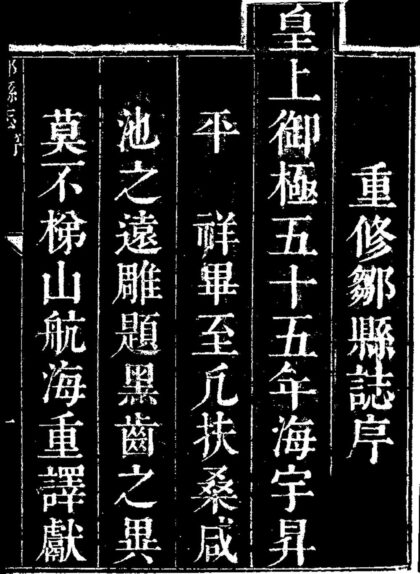 重修鄒縣誌序
皇上御極五十五年海宇昇
平 祥畢至凡扶桑咸
池之遠雕題黑齒之異
莫不梯山航海重譯獻